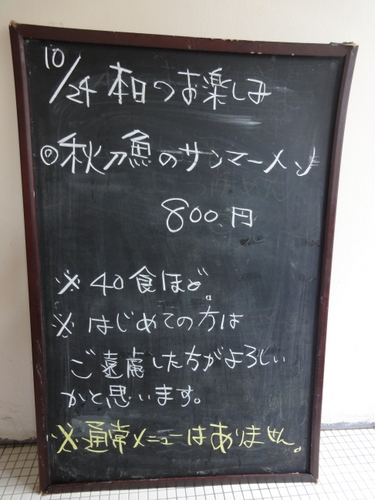 10/24 本日のお楽しみ
◎秋刀魚のサンマーメン♪
800.円
※40食ほど。
※はじめての方は
ご遠慮した方がよろしい
かと思います。
※通常メニューはありません。